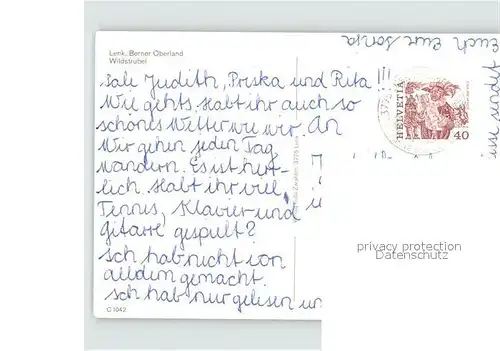 Lenk, Berner Oberland
Wildstrubel
Sali Judith, Priska und Rita!!!
Wie gehts Habt ihr auch so
schönes Wetter wie wir. An
Wir gehen jeden Tag
wandern. Es ist herr-
lich. Habt ihr viel
Tennis, Klavier und
gitarre gespielt?
Ich hab nicht von
alldem gemacht.
Ich hab nur gelesen un
C 1042
Euch Eure
HELVETIA
40
sendet
privacy protection
Datenschutz